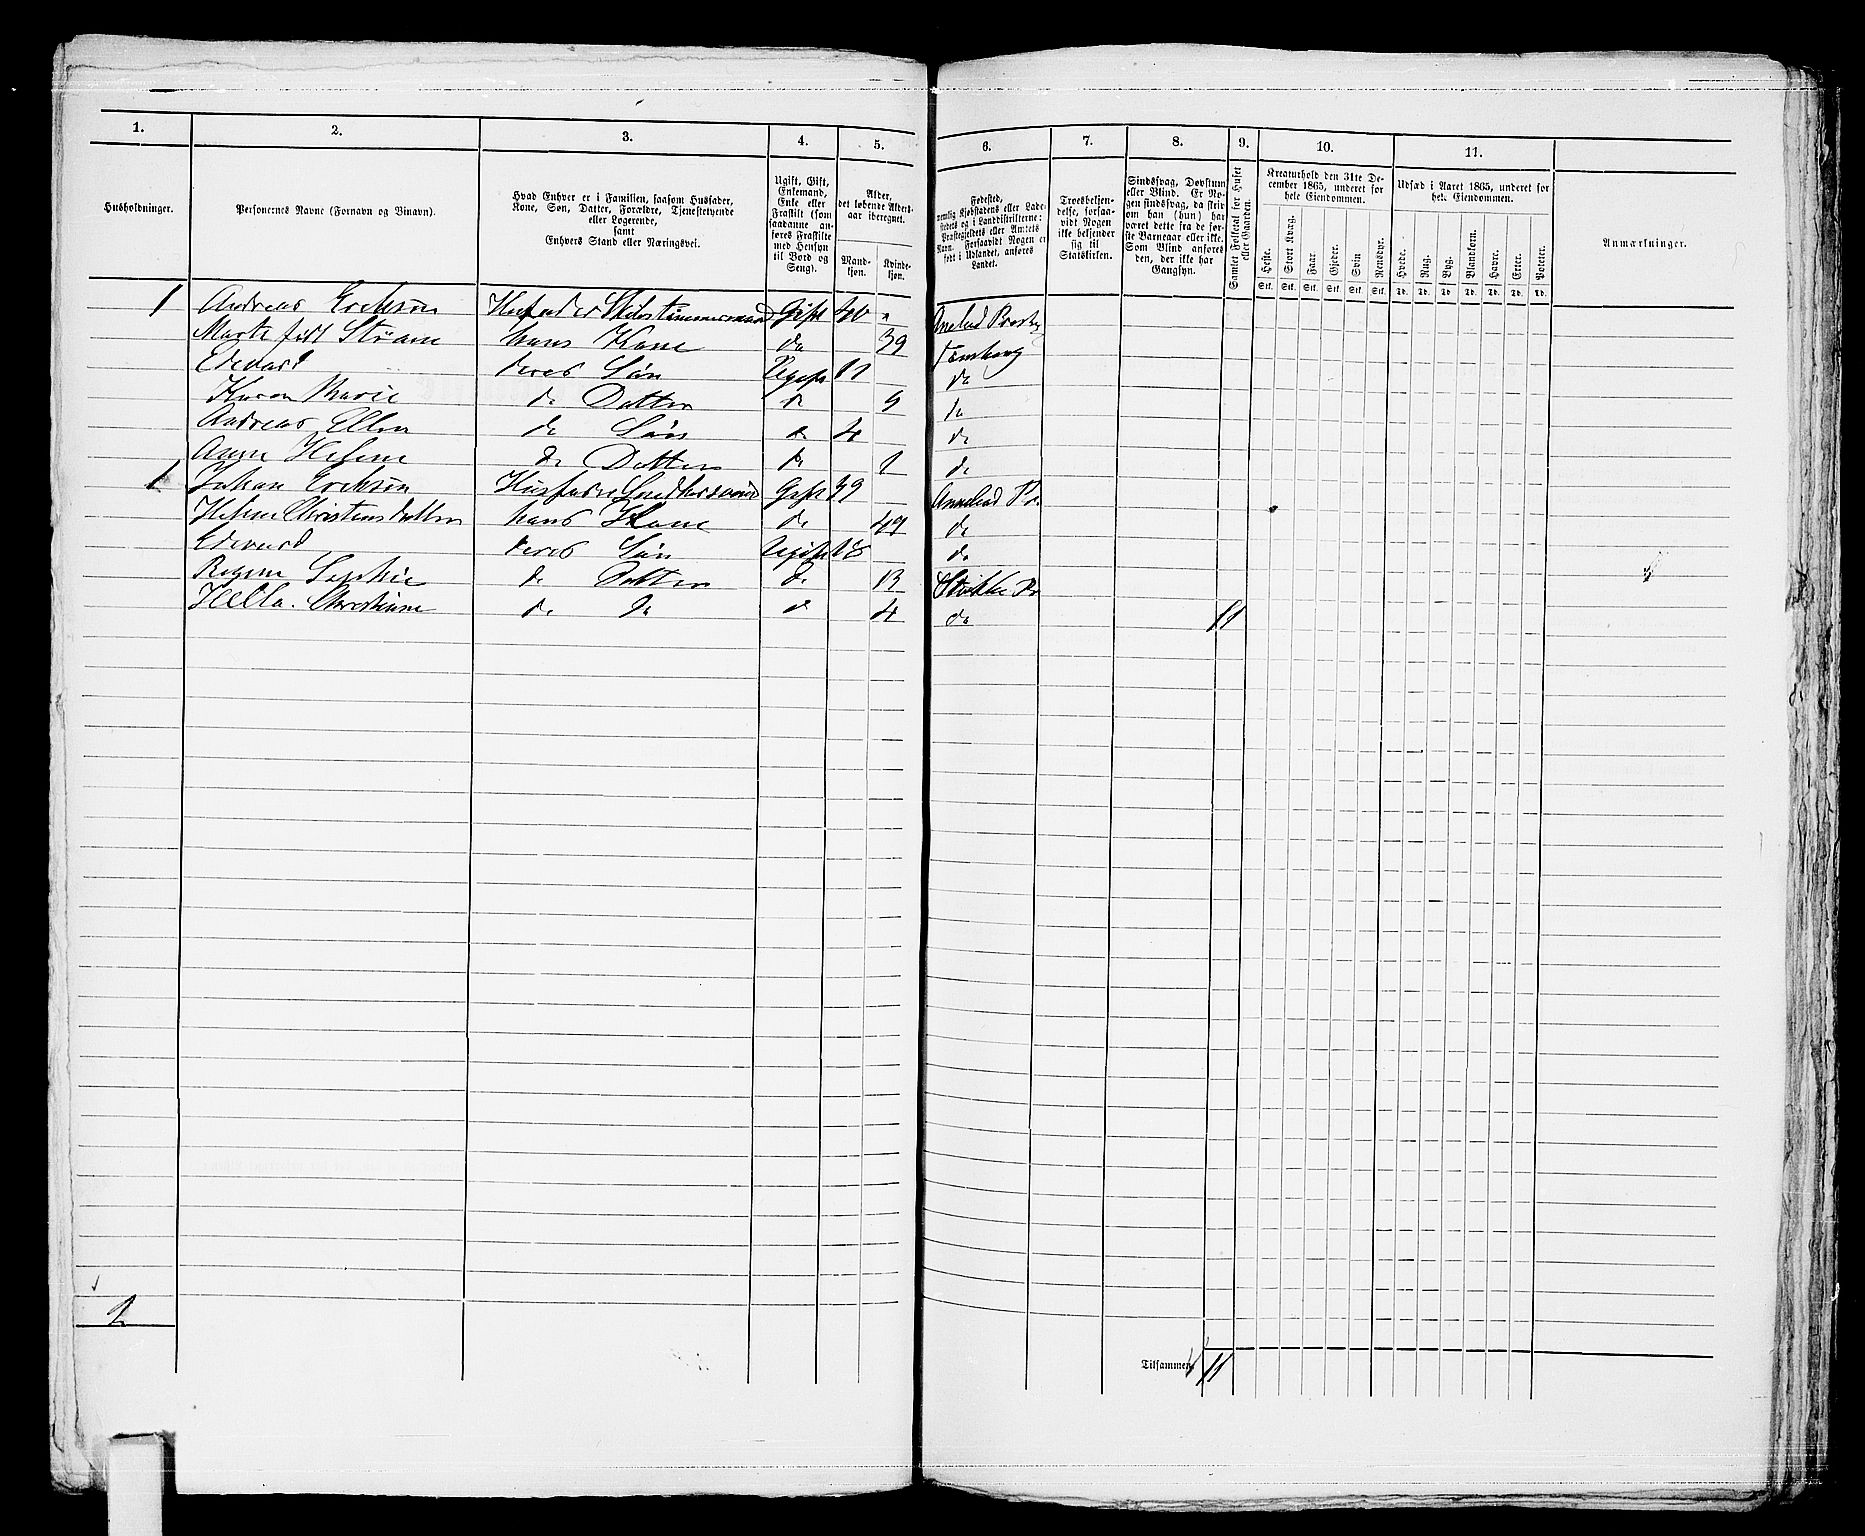 1. 2. 3. 4. 5. 6. 7. 8. 9. 10. 11.
Husholdninger.
Personernes Navne (Fornavn og Binavn).
Hvad Enhver er i Familien, saasom Husfader, Kone, Søn, Datter, Forældre, Tjenestetyende eller Logerende, samt Enhvers Stand eller Næringsvei.
Ugift, Gift, Enkemand, Enke eller Fraskilt (som saadanne anføres Fraskilte med Hensyn til Bord og Seng).
Alder, det løbende Aldersaar iberegnet.
Mandkjøn. Kvindekjøn.
Fødested, nemlig Kjøbstadens eller Ladestedets og i Landdistrikterne: Præstegjeldets eller Amtets Navn. Forsaavidt Nogen er født i Udlandet, anføres Landet.
Troesbekjendelse, forsaavidt Nogen ikke bekjender sig til Statskirken.
Sindssvag, Døvstum eller Blind. Er Nogen sindssvag, da skrives om han (hun) har været dette fra de første Barneaar eller ikke. Som Blind anføres den, der ikke har Gangsyn.
Samlet Folketal for Huset eller Gaarden.
Kreaturhold den 31te December 1865, underet for hele Eiendommen.
Heste. Stort Kvæg. Faar. Gjeder. Svin Rensdyr.
Stk. Stk. Stk. Stk. Stk. Stk.
Udsæd i Aaret 1865, underet for hele Eiendommen.
Hvede. Rug. Byg. Blandkorn. Havre. Erter. Poteter.
Td. Td. Td. Td. Td. Td. Td.
Anmærkninger.
1 Andreas Erichsøn Husfader Skibstømmermand Gift 40 "
hans Kone do 39
Edevard deres Søn Ugift 11 do
Karen Marie do Datter do 9 do
Andreas do Søn do 4 do
do Datter do 1 do
1 Johan Erichsøn Husfader Gift 39
Christensdatter hans Kone do 49 do
Edevard deres Søn Ugift 18 do
Sophie do Datter do 13 Stokke Pr
Christiane do do do 4 do 11
2
Tilsammen 11